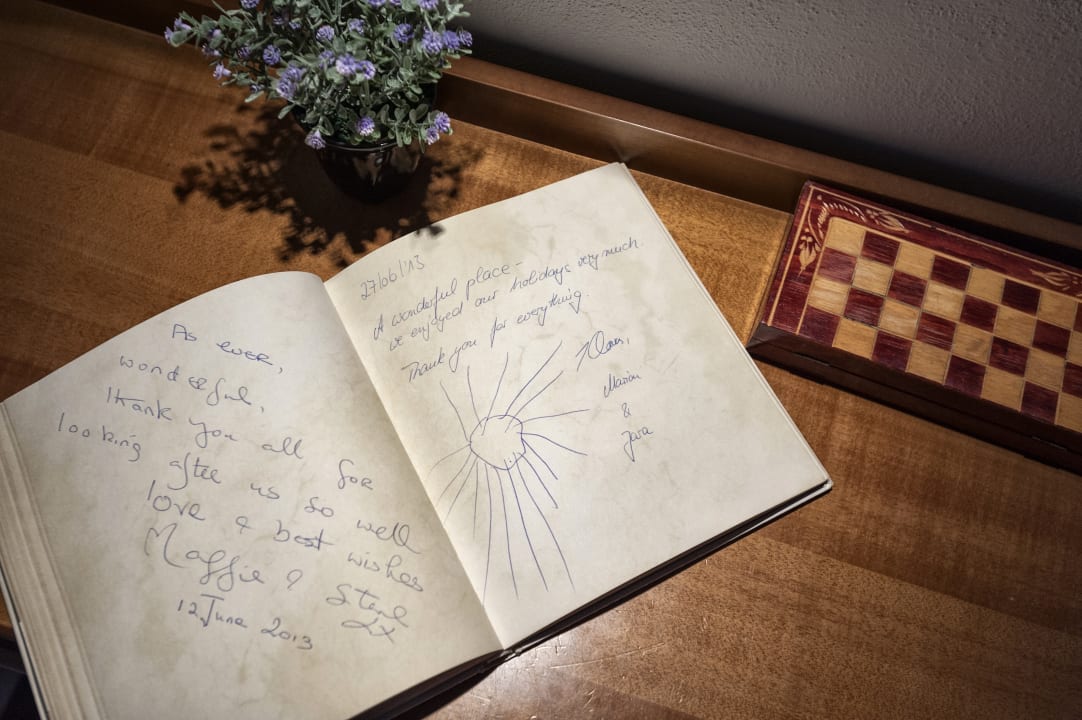 As ever,
wonderful,
thank you all for
looking after us so well
love & best wishes
Maggie & Steve
xx
12 June 2013
27/06/'13
A wonderful place -
we enjoyed our holidays very much.
Thank you for everything.
Marion
&
Jara